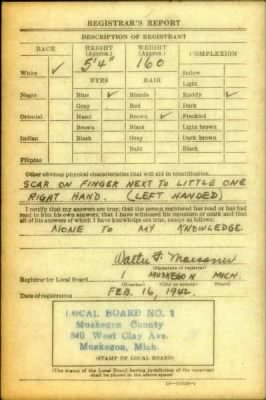 REGISTRAR'S REPORT
DESCRIPTION OF REGISTRANT
RACE HEIGHT (Approx.) WEIGHT (Approx.) COMPLEXION
5'4" 160
White ✓ Sallow
EYES HAIR Light
Negro Blue ✓ Blonde Ruddy ✓
Gray Red Dark
Oriental Hazel Brown ✓ Freckled
Brown Black Light brown
Indian Black Gray Dark brown
Bald Black
Filipino
Other obvious physical characteristics that will aid in identification.
SCAR ON FINGER NEXT TO LITTLE ONE
RIGHT HAND. (LEFT HANDED)
I certify that my answers are true; that the person registered has read or has had
read to him his own answers; that I have witnessed his signature or mark and that
all of his answers of which I have knowledge are true, except as follows:
NONE TO MY KNOWLEDGE.
Walter F.
(Signature of registrar)
Registrar for Local Board 1 MUSKEGON MICH.
Date of registration FEB. 16, 1942
LOCAL BOARD NO. 1
Muskegon County
840 West Clay Ave.
Muskegon, Mich.
(STAMP OF LOCAL BOARD)
(The stamp of the Local Board having jurisdiction of the registrant
shall be placed in the above space.)